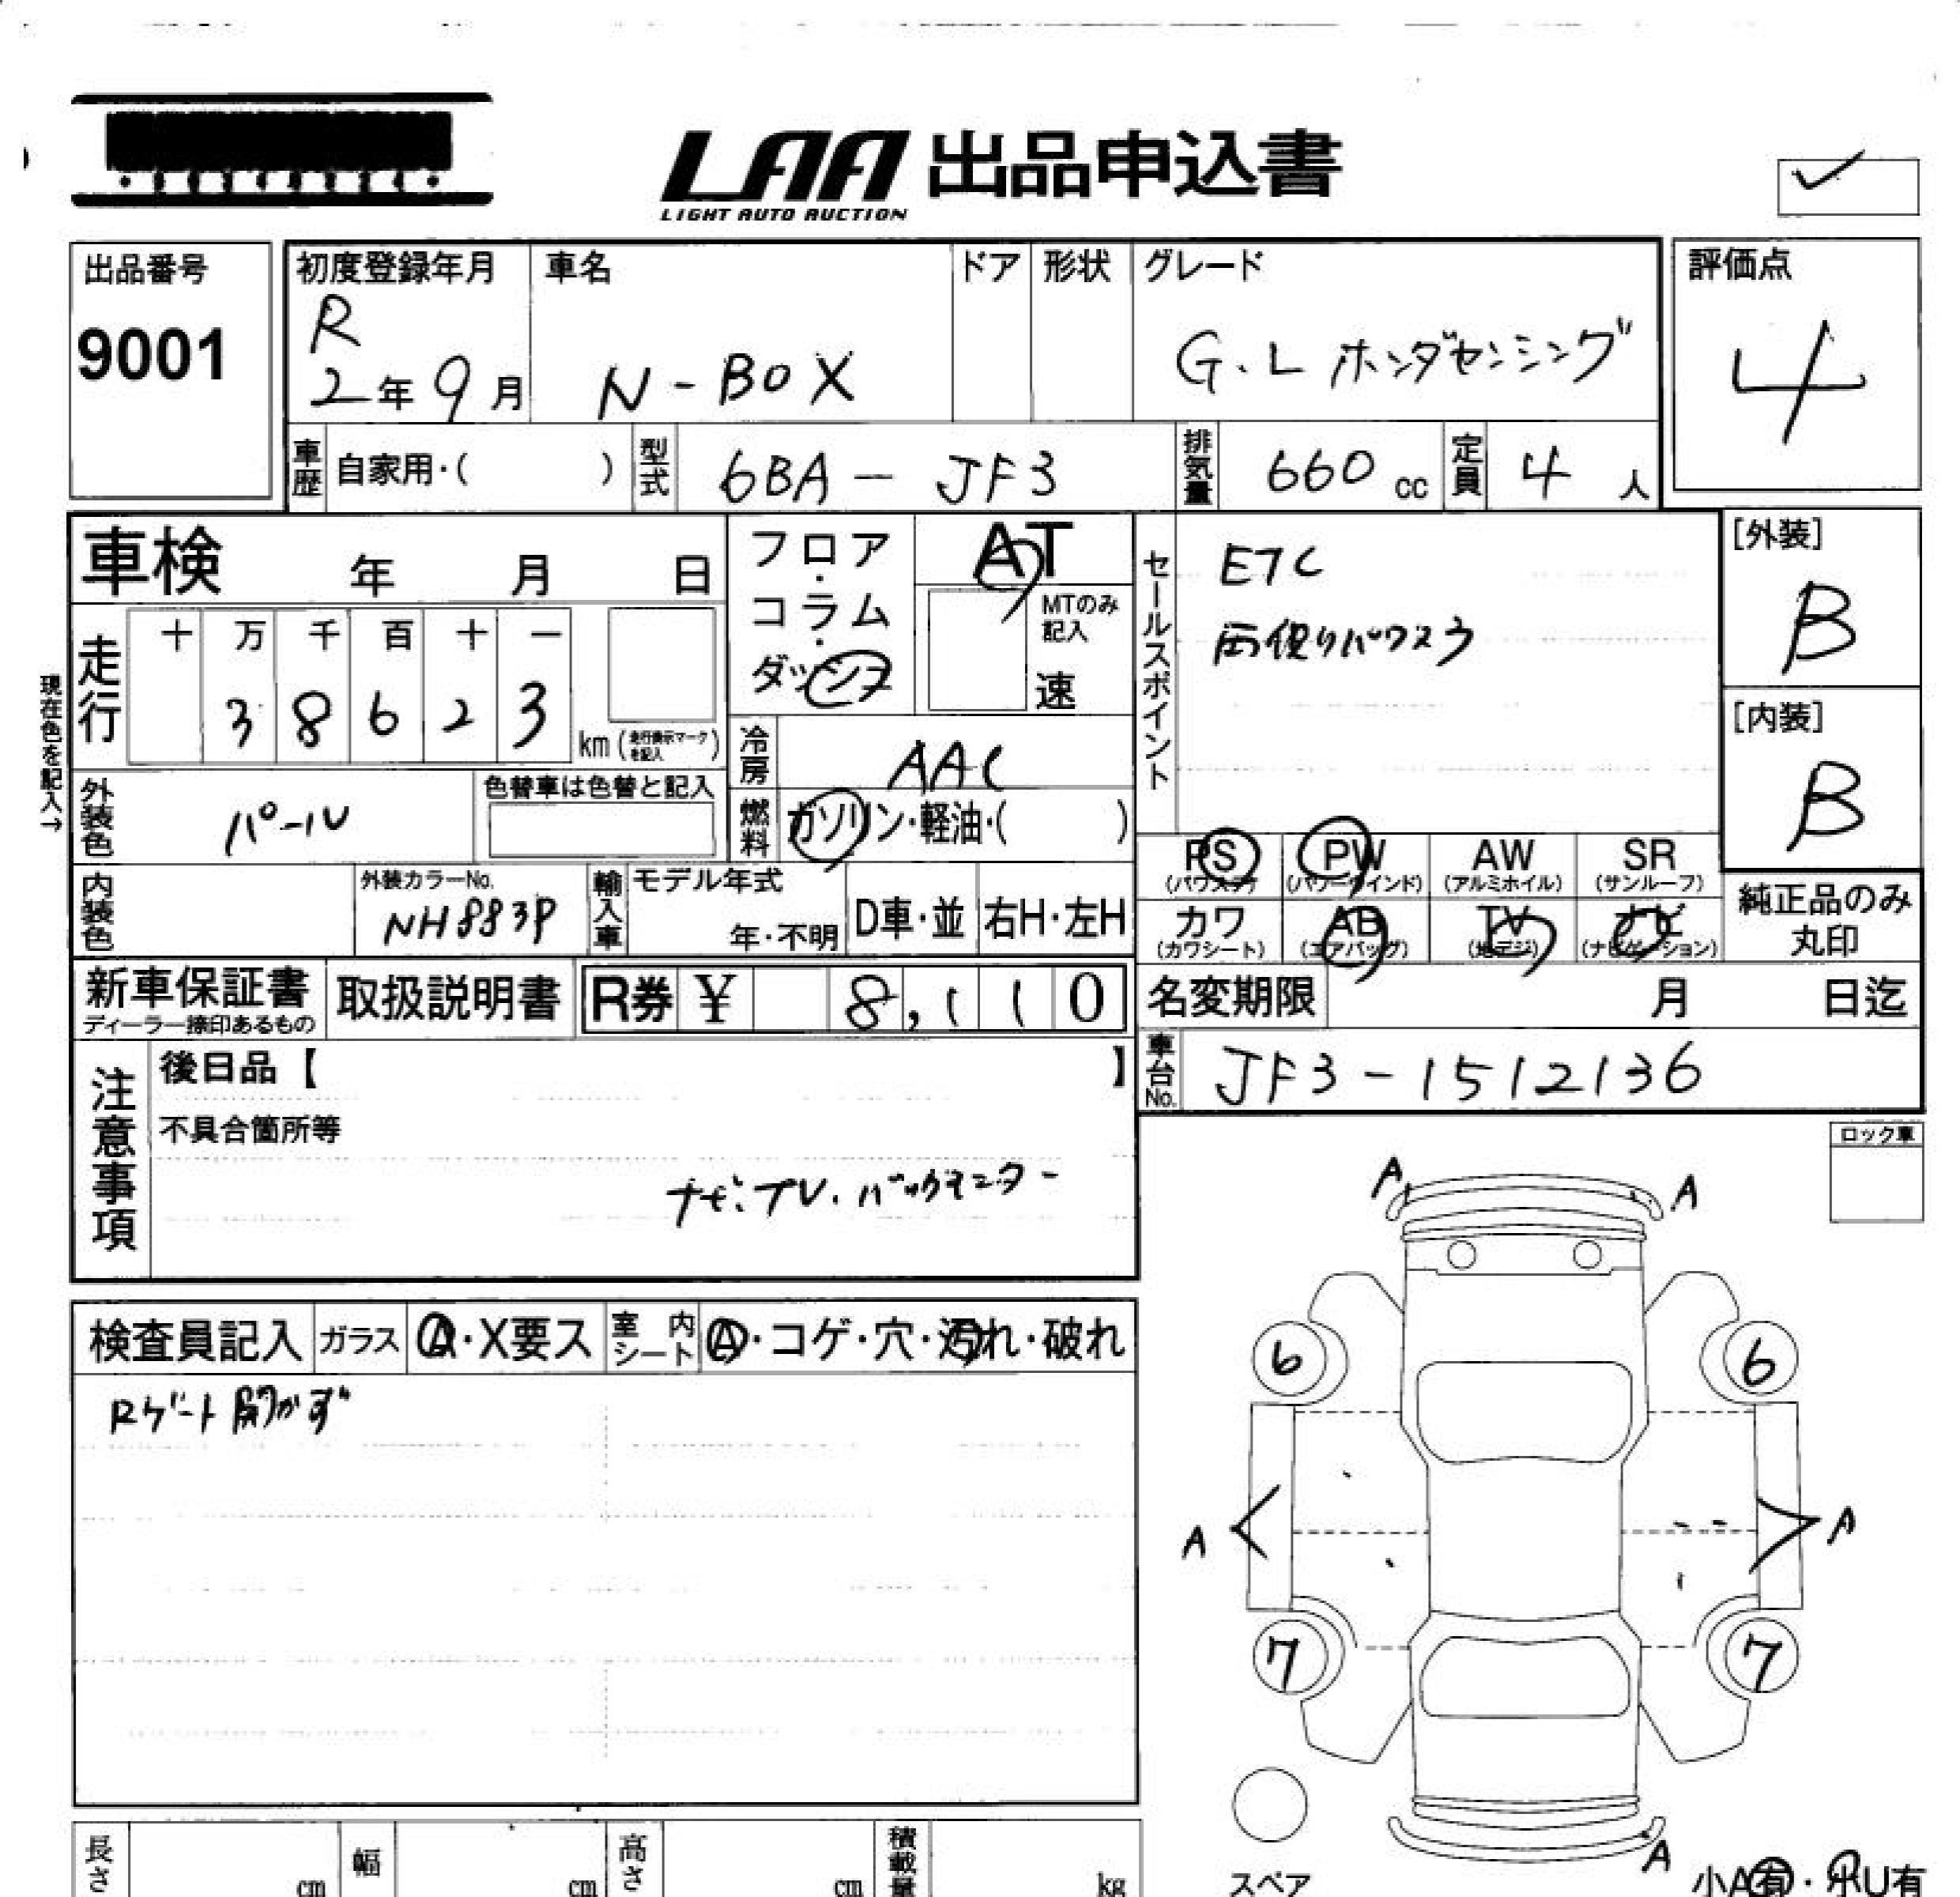 LAA 出品申込書
LIGHT AUTO AUCTION
出品番号
9001
初度登録年月
R
2年9月
車名
N-BOX
ドア
形状
グレード
G・L ホンダセンシング
評価点
4
車歴
自家用・( )
型式
6BA-JF3
排気量
660 cc
定員
4 人
車検 年 月 日
フロア・コラム・ダッシュ
AT
MTのみ記入
速
現在色を記入→
走行
十 万 千 百 十 一
3 8 6 2 3
km (走行表示マークを記入)
冷房
AAC
燃料
ガソリン・軽油・( )
外装色
パール
色替車は色替と記入
内装色
外装カラーNo.
NH883P
輸入車
モデル年式
年・不明
D車・並
右H・左H
セールスポイント
ETC
両側パワスラ
[外装]
B
[内装]
B
PS
(パワステ)
PW
(パワーウインド)
AW
(アルミホイル)
SR
(サンルーフ)
カワ
(カワシート)
AB
(エアバッグ)
TV
(地デジ)
ナビ
(ナビゲーション)
純正品のみ
丸印
新車保証書
ディーラー捺印あるもの
取扱説明書
R券 ¥ 8,110
名変期限 月 日迄
車台No.
JF3-1512136
注意事項
後日品【 】
不具合箇所等
ナビ・TV・バックモニター
ロック車
検査員記入
ガラス
A・X要ス
室内シート
A・コゲ・穴・汚れ・破れ
Rゲート開かず
A A
6 6
A A
7 7
A
スペア
小A有・小U有
長さ cm
幅 cm
高さ cm
積載量 kg